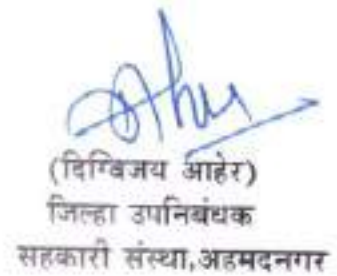 (दिग्विजय आहेर)
जिल्हा उपनिबंधक
सहकारी संस्था,अहमदनगर